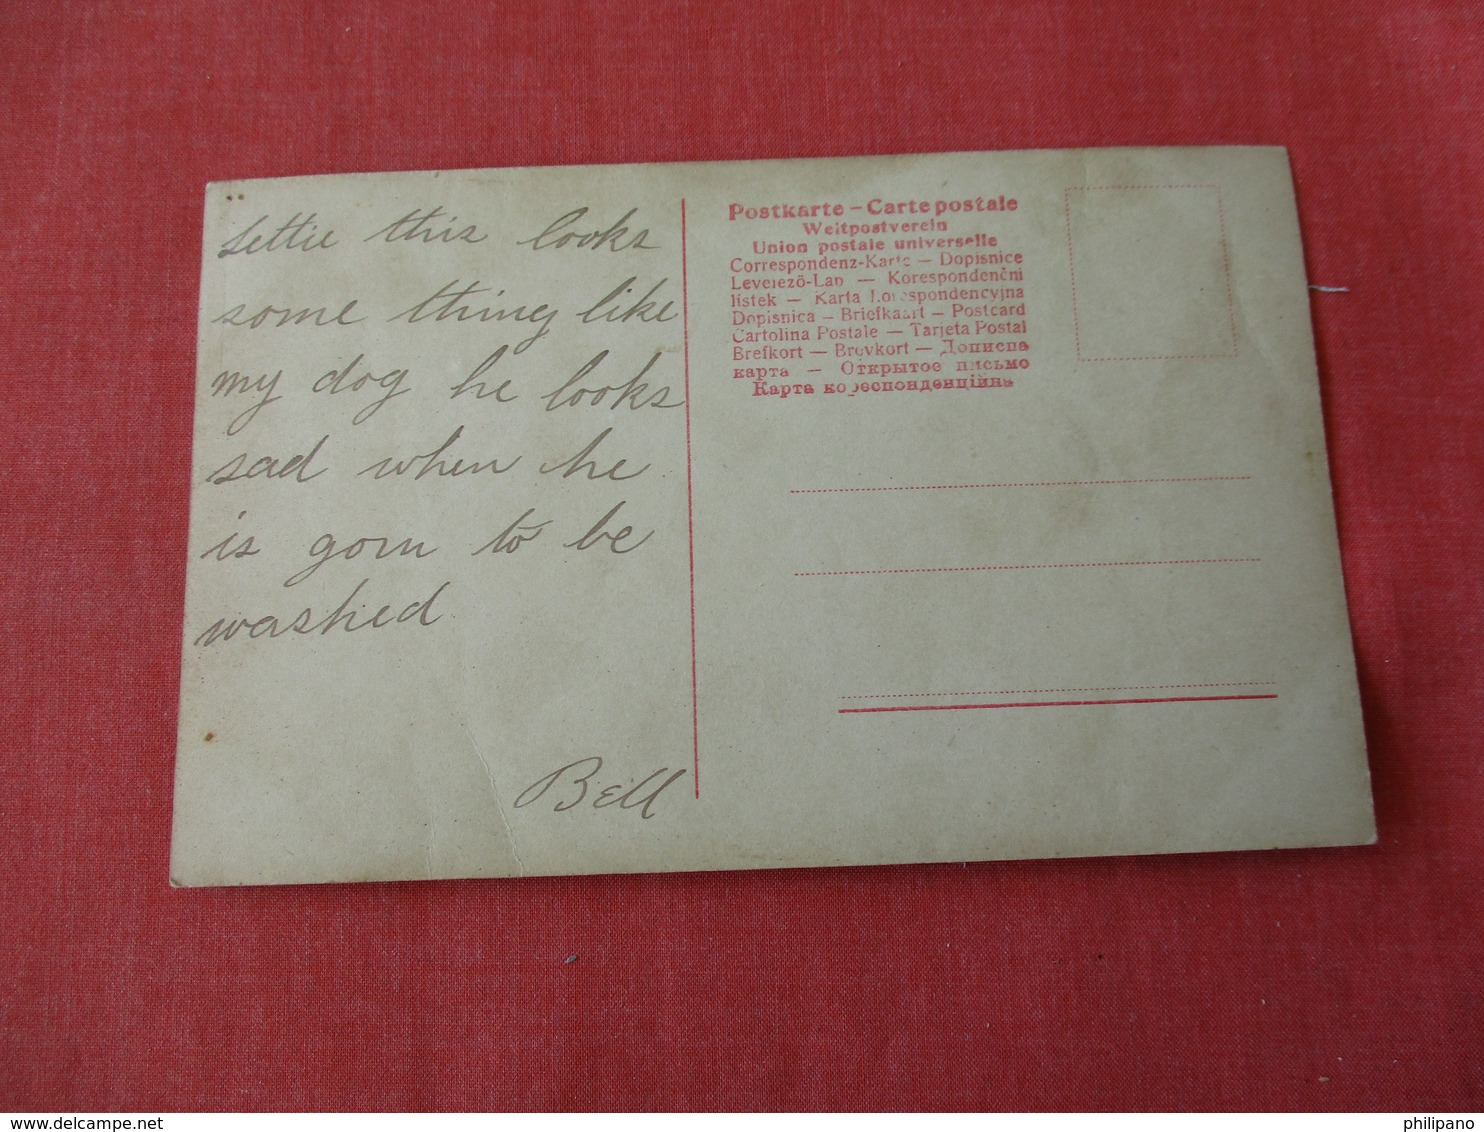 Lettie this looks
some thing like
my dog he looks
sad when he
is goin to be
washed
Bell
Postkarte – Carte postale
Weltpostverein
Union postale universelle
Correspondenz-Karte — Dopisnice
Levelező-Lap — Korespondenční
lístek — Karta korespondencyjna
Dopisnica — Briefkaart — Postcard
Cartolina Postale — Tarjeta Postal
Brefkort — Brevkort — Дописна
карта — Открытое письмо
Карта кореспонденційна
www.delcampe.net
philipano